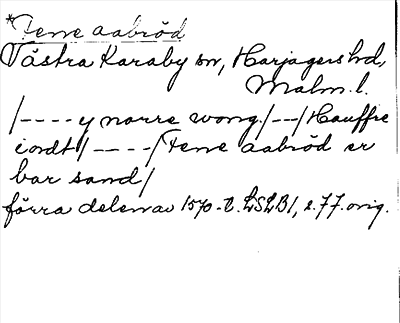 *Tenne aabröd
Västra Karaby sn, Harjagers hd,
Malm. l.
/---- y norre wong /--/ Hauffre
iordt /----/ Tenne aabröd er
bar sand /
förra delen av 1570-t. LSLB1, s. 77. orig.